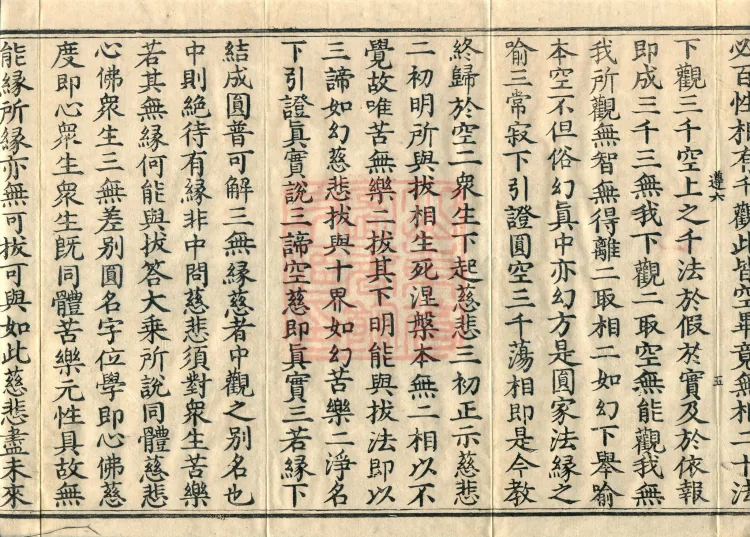 必百性相有千觀此皆空畢竟無相二十法
遵六
五
下觀三千空上之千法於假於實及於依報
即成三千三無我下觀二取空無能觀我無
我所觀無智無得離二取相二如幻下舉喻
本空不但俗幻眞中亦幻方是圓家法緣之
喻三常寂下引證圓空三千蕩相即是今教
終歸於空二衆生下起慈悲三初正示慈悲
二初明所與拔相生死涅槃本無二相以不
覺故唯苦無樂二拔其下明能與拔法即以
三諦如幻慈悲拔與十界如幻苦樂二淨名
下引證眞實說三諦空慈即眞實三若緣下
結成圓普可解三無緣慈者中觀之別名也
中則絶待有緣非中問慈悲須對衆生苦樂
若其無緣何能與拔答大乘所說同體慈悲
心佛衆生三無差別圓名字位學即心佛慈
度即心衆生衆生旣同體苦樂元性具故無
能緣所緣亦無可拔可與如此慈悲盡未來